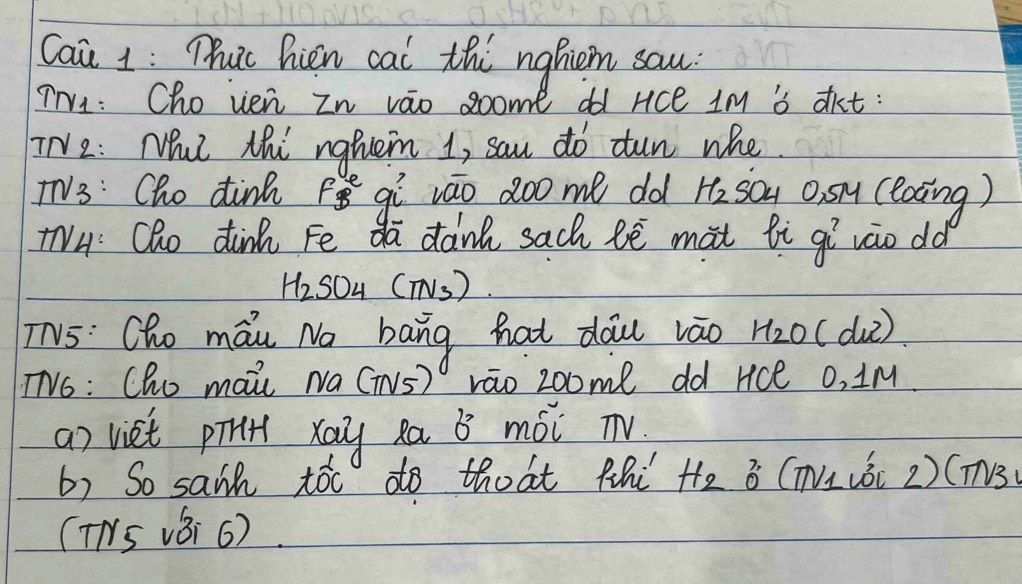 Câu 1: Thực hiện các thí nghiệm sau:
TN1: Cho viên Zn vào 200ml dd HCl 1M ở đkt:
TN2: Như thí nghiệm 1, sau đó đun nhẹ.
TN3: Cho đinh Fe gỉ vào 200 ml dd H2SO4 0,5M (loãng)
TN4: Cho đinh Fe đã đánh sạch bề mặt bị gỉ vào dd
H2SO4 (TN3).
TN5: Cho mẩu Na bằng hạt đậu vào H2O (dư).
TN6: Cho mẩu Na (TN5) vào 200ml dd HCl 0,1M.
a) viết PTHH xảy ra ở mỗi TN.
b) So sánh tốc độ thoát khí H2 ở (TN1 với 2) (TN3 v
(TN5 với 6).